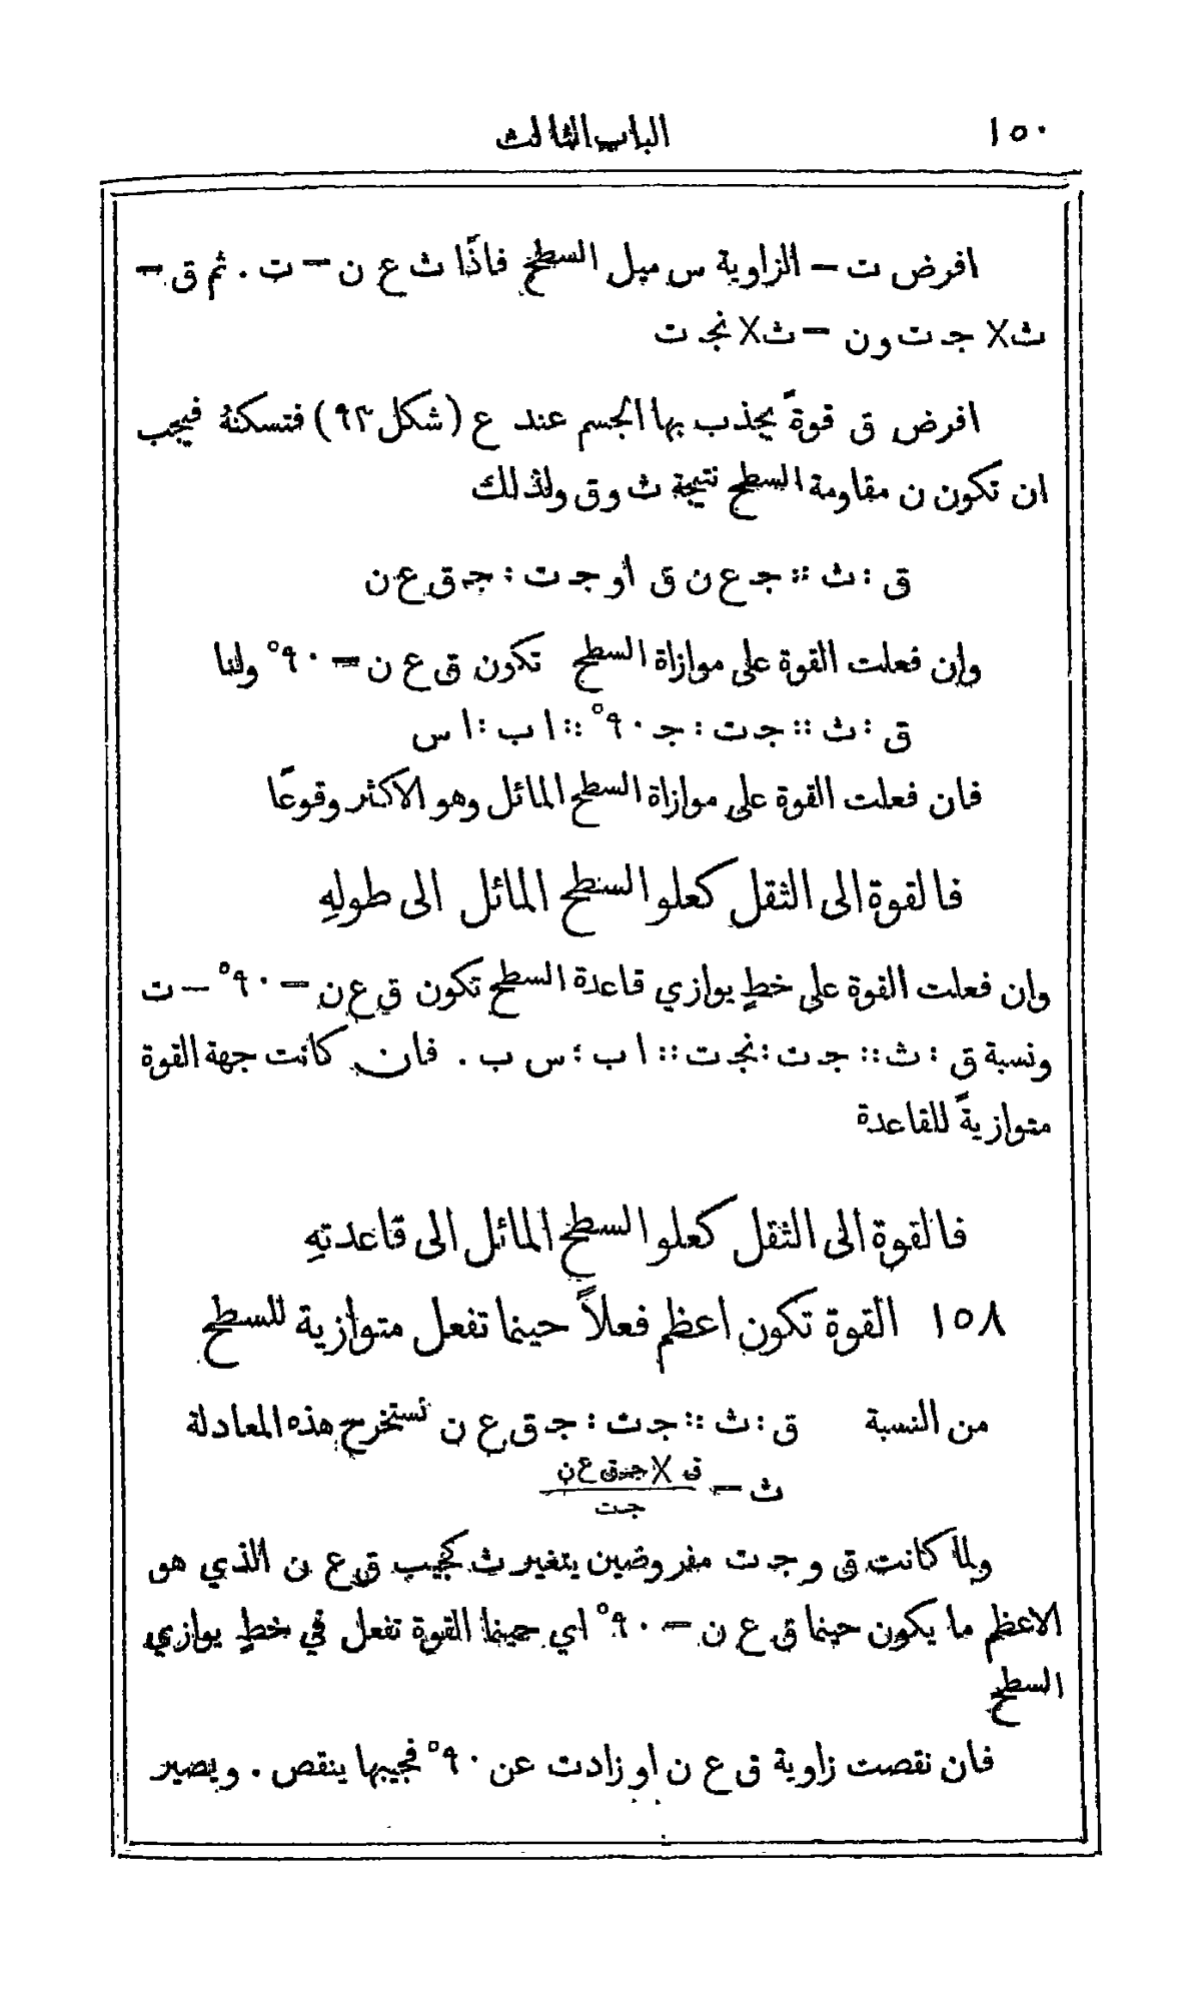 ١٥٠
الباب الثالث
افرض ت = الزاوية س ميل السطح فاذًا ث ع ن = ت . ثم ق =
ث× جـ ت و ن = ث× نجـ ت
افرض ق قوةً يجذب بها الجسم عند ع (شكل ٩٢) فتسكنهُ فيجب
ان تكون ن مقاومة السطح نتيجة ث و ق ولذلك
ق : ث :: جـ ع ن ق او جـ ت : جـ ق ع ن
وإن فعلت القوة على موازاة السطح تكون ق ع ن = ٩٠° ولنا
ق : ث :: جـ ت : جـ ٩٠° :: ا ب : ا س
فان فعلت القوة على موازاة السطح المائل وهو الاكثر وقوعًا
فالقوة الى الثقل كعلو السطح المائل الى طولهِ
وان فعلت القوة على خطٍ يوازي قاعدة السطح تكون ق ع ن = ٩٠° – ت
ونسبة ق : ث :: جـ ت : نجـ ت :: ا ب : س ب . فان كانت جهة القوة
متوازيةً للقاعدة
فالقوة الى الثقل كعلو السطح المائل الى قاعدتهِ
١٥٨ القوة تكون اعظم فعلاً حينما تفعل متوازية للسطح
من النسبة ق : ث :: جـ ت : جـ ق ع ن نستخرج هذه المعادلة
ث = ق × جـ ق ع ن / جـ ت
ولما كانت ق و جـ ت مفروضين يتغير ث كجيب ق ع ن الذي هو
الاعظم ما يكون حينما ق ع ن = ٩٠° اي حينما القوة تفعل في خطٍ يوازي
السطح
فان نقصت زاوية ق ع ن او زادت عن ٩٠° فجيبها ينقص . ويصير